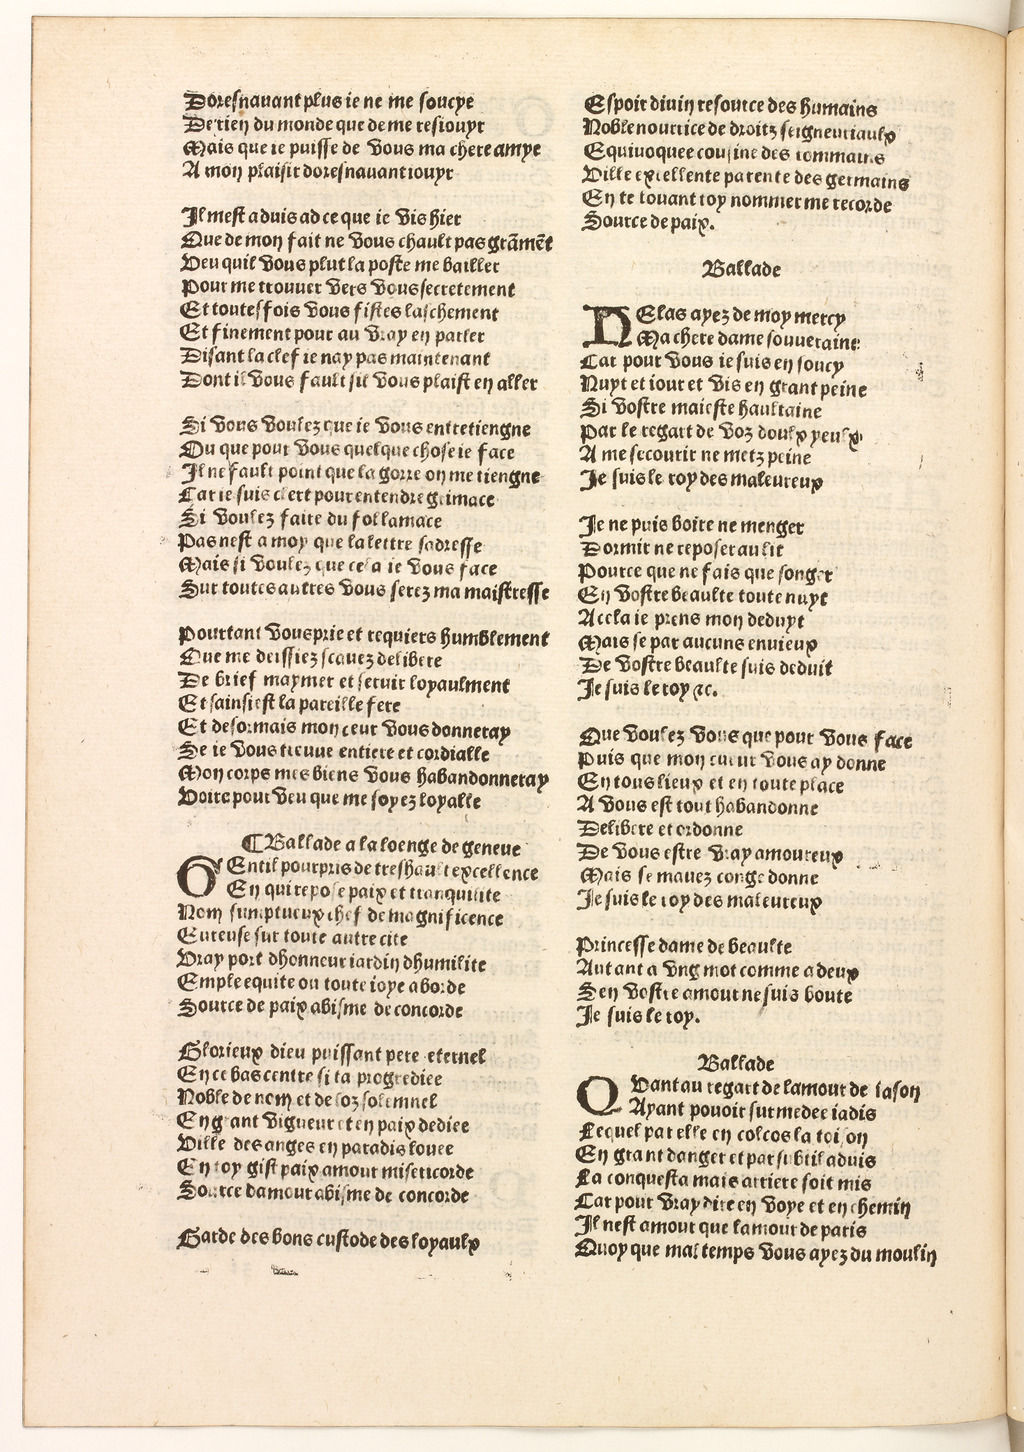 Doresnavant plus ie ne me soucye
De rien du monde que de me resiouyr
Mais que ie puisse de vous ma chere amye
A mon plaisir doresnavant iouyr
Il mest aduis ad ce que ie vis hier
Que de mon fait ne vous chault pas grãmẽt
Veu quil vous plut la poste me bailler
Pour me trouuer vers vous secretement
Et toutesfois vous fistes laschement
Et finement pour au vray en parler
Disant la clef ie nay pas maintenant
Dont il vous fault sil vous plaist en aller
Si vous voulez que ie vous entretiengne
Ou que pour vous quelque chose ie face
Il ne fault point que la gorre on me tiengne
Car ie suis clert pour entendre grimace
Si voulez faire du fol lamace
Pas nest a moy que la lettre sadresse
Mais si voulez que cela ie vous face
Sur toutes autres vous serez ma maistresse
Pourtant vous prie et requiers humblement
Que me deissiez scauez delibere
De brief maymer et seruir loyaulment
Et sainsi est la pareille fere
Et desormais mon ceur vous donneray
Se ie vous treuue entiere et cordialle
Mon corps mes biens vous habandonneray
Voire pour veu que me soyez loyalle
¶ Ballade a la loenge de geneue
GEntil pourpris de treshault excellence
En qui repose paix et tranquilite
Nom sumptueux chef de magnificence
Eureuse sur toute autre cite
Vray port dhonneur iardin dhumilite
Emple equite ou toute ioye aborde
Source de paix abisme de concorde
Glorieux dieu puissant pere eternel
En ce bas centre si ta progrediee
Noble de nom et de loz solemnel
En grant vigueur et en paix dediee
Ville des anges en paradis louee
En toy gist paix amour misericorde
Source damour abisme de concorde
Garde des bons custode des loyaulx
Espoir diuin resource des humains
Noble nourrice de droitz seigneuriaulx
Equiuoquee cousine des rommains
Ville excellente parente des germains
En te louant toy nommer me recorde
Source de paix.
Ballade
HElas ayez de moy mercy
Ma chere dame souueraine
Car pour vous ie suis en soucy
Nuyt et iour et vis en grant peine
Si vostre maieste haultaine
Par le regart de voz doulx yeulx
A me secourir ne metz peine
Je suis le roy des maleureux
Je ne puis boire ne menger
Dormir ne reposer au lit
Pource que ne fais que songer
En vostre beaulte toute nuyt
A cela ie prens mon deduyt
Mais se par aucuns enuieux
De vostre beaulte suis deduit
Je suis le roy ⁊c.
Que voulez vous que pour vous face
Puis que mon cueur vous ay donne
En tous lieux et en toute place
A vous est tout habandonne
Delibere et ordonne
De vous estre vray amoureux
Mais se mauez conge donne
Je suis le roy des maleureux
Princesse dame de beaulte
Autant a vng mot comme a deux
Sen vostre amour ne suis boute
Je suis le roy.
Ballade
QVant au regart de lamour de iason
Ayant pouoir sur medee iadis
Lequel par elle en colcos la toison
En grant danger et par subtil aduis
La conquesta mais arriere soit mis
Car pour vray dire en voye et en chemin
Il nest amour que lamour de paris
Quoy que mal temps vous ayez du moulin